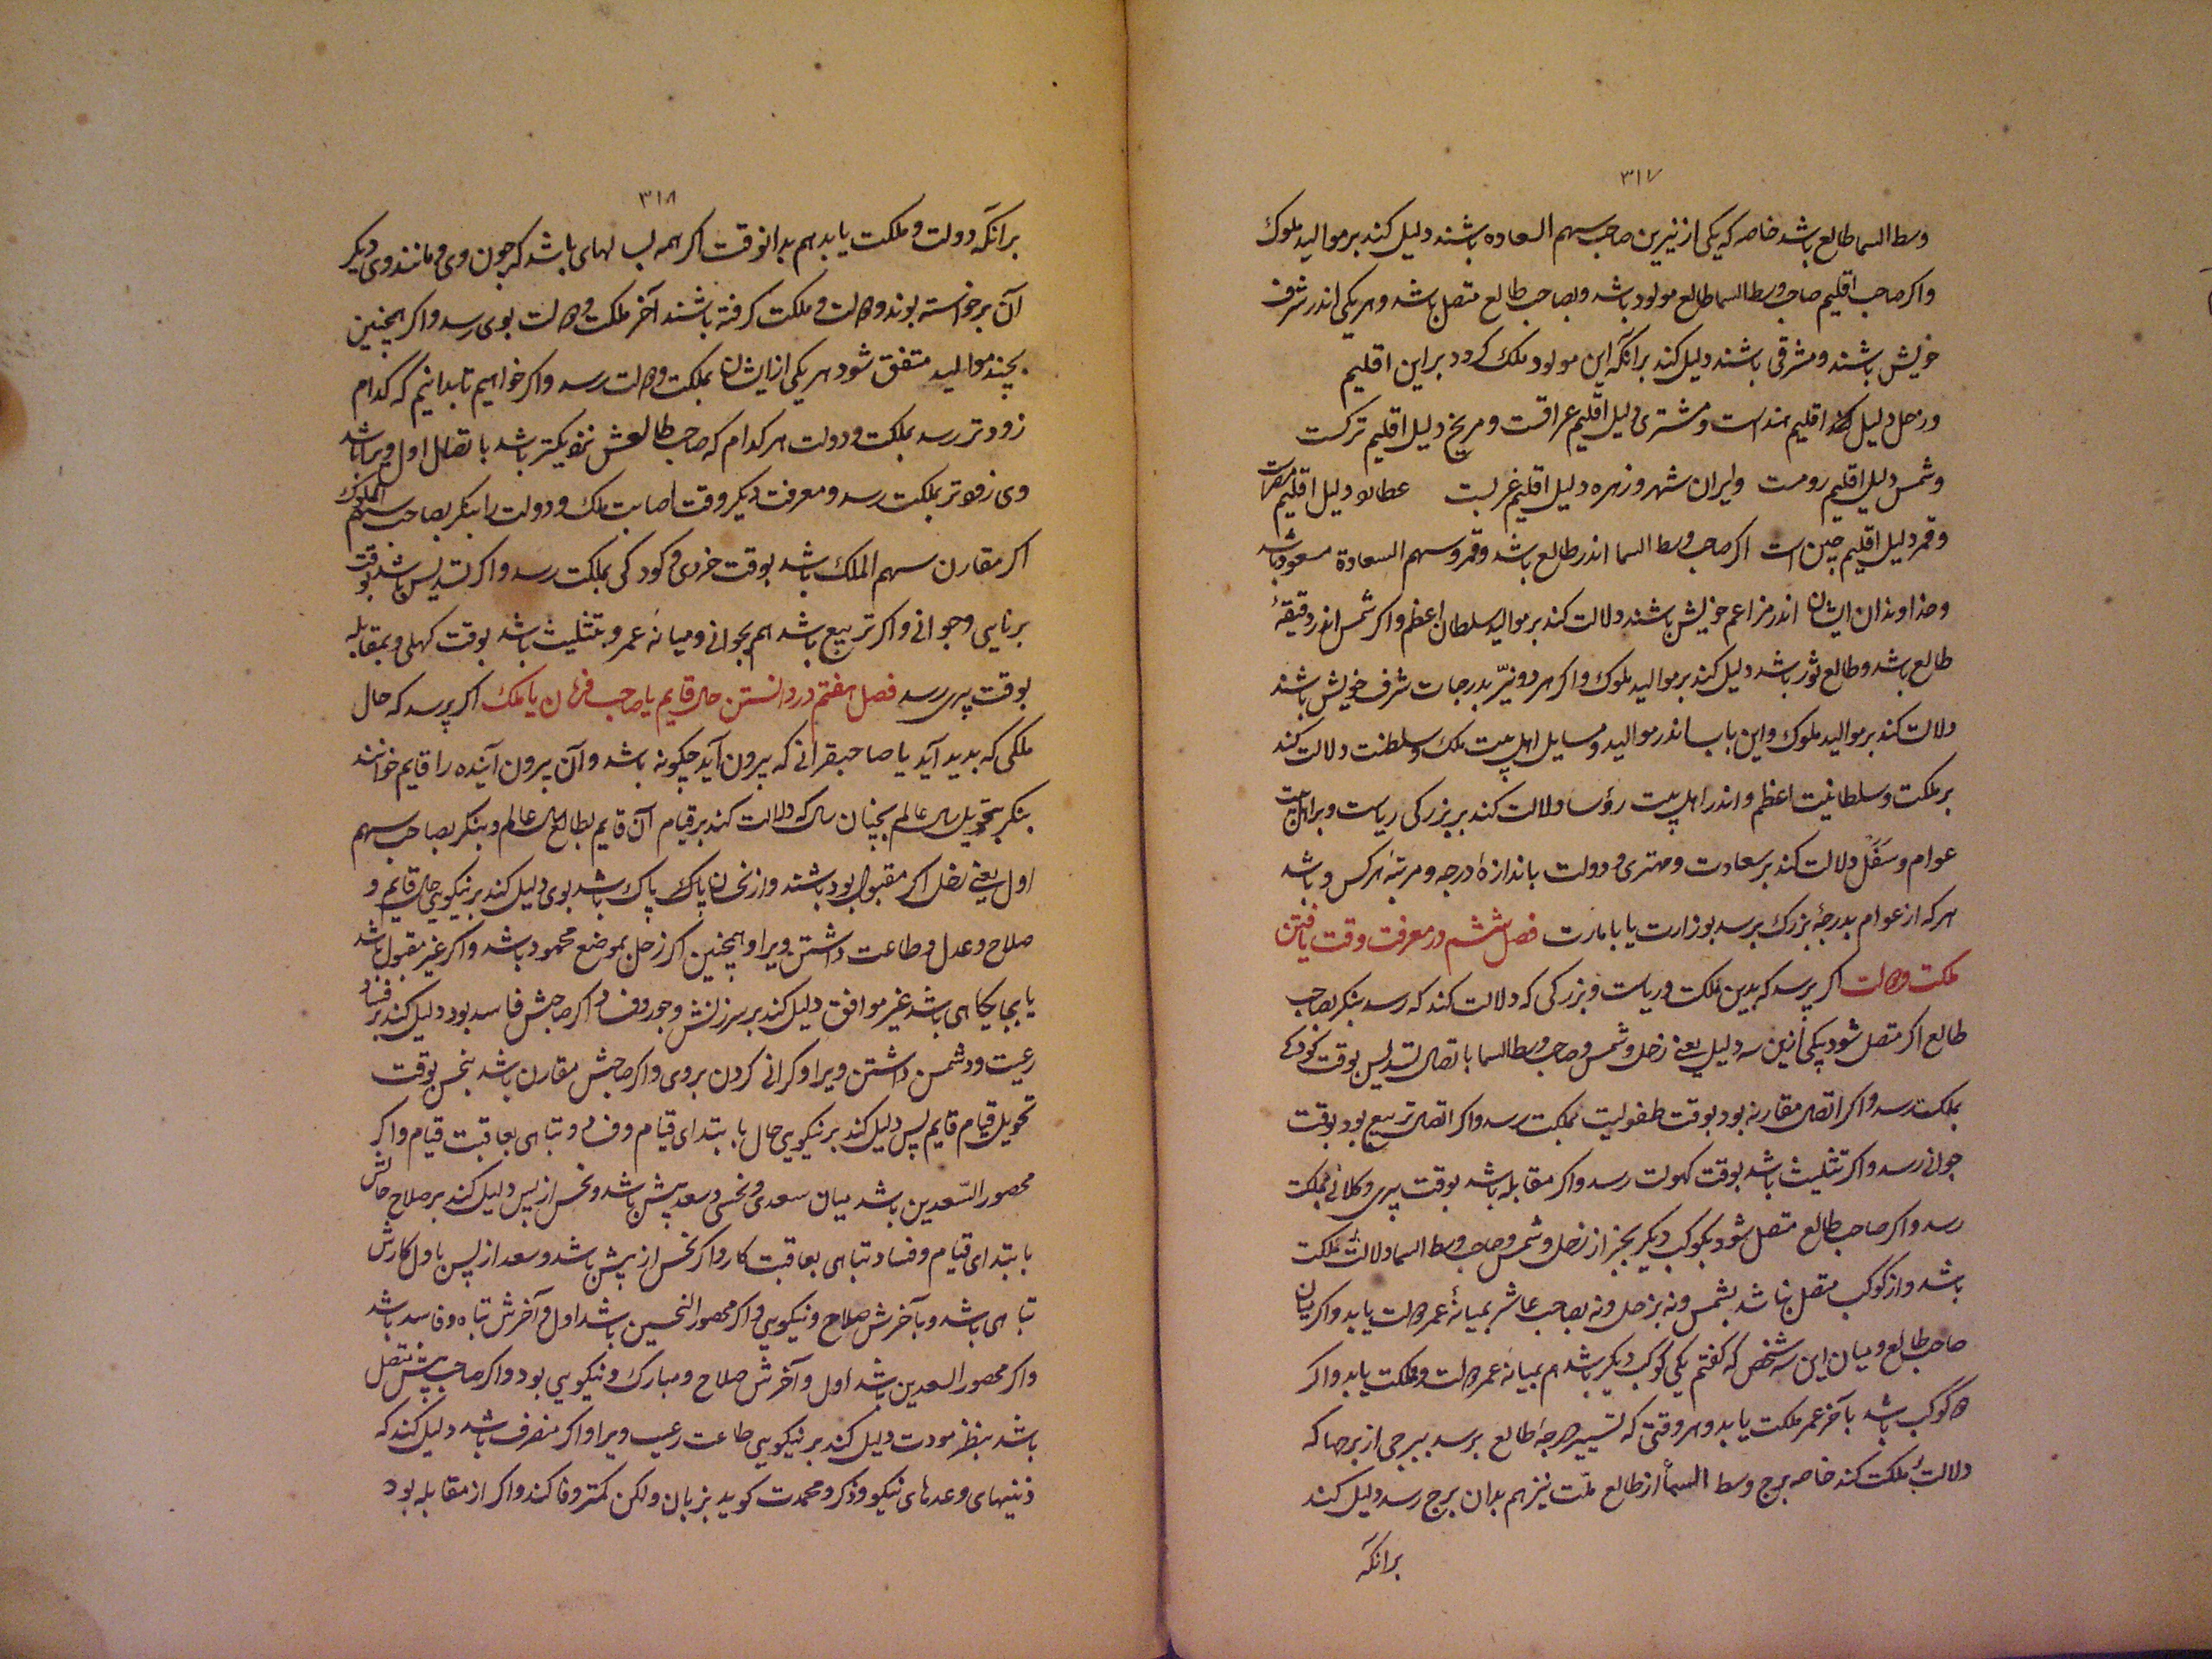 ۳۱۷
وسط السما طالع باشد خاصه که یکی از نیرین صاحب سهم السعاده باشند دلیل کند بر موالید ملوک
واکر صاحب اقلیم صاحب وسط السما طالع مولود باشد و بصاحب طالع متصل باشد و هریکی اندر شرف
خویش باشند و مشرقی باشند دلیل کند برانکه این مولود ملک کردد براین اقلیم
و زحل دلیل اقلیم هند است و مشتری دلیل اقلیم عراقست و مریخ دلیل اقلیم ترکست
و شمس دلیل اقلیم رومست و ایران شهر و زهره دلیل اقلیم عربست عطارد دلیل اقلیم
و قمر دلیل اقلیم چین است اکر صاحب وسط السما اندر طالع باشد و قمر و سهم السعادة مسعود باشد
و خداوندان ایشان اندر مزاعم خویش باشند دلالت کند بر موالید سلطان اعظم و اکر شمس اندر دقیقهٔ
طالع باشد و طالع ثور باشد دلیل کند بر موالید ملوک و اکر هر دو نیّر بدرجات شرف خویش باشند
دلالت کند بر موالید ملوک و این باب اندر موالید و مسایل اهل بیت ملک و سلطنت دلالت کند
بر ملکت و سلطانیت اعظم و اندر اهل بیت رؤسا دلالت کند بر بزرکی ریاست و بر اهل بیت
عوام و سفل دلالت کند بر سعادت و مهتری و دولت باندازهٔ درجه و مرتبهٔ هرکس و باشد
هرکه از عوام بدرجهٔ بزرک برسد بوزارت یا بامارت فصل ششم در معرفت وقت یافتن
ملکت و دولت اکر پرسد که بدین ملکت و ریاست و بزرکی که دلالت کند که رسد بنکر بصاحب
طالع اکر متصل شود بیکی ازین سه دلیل یعنی زحل و شمس و صاحب وسط السما باتصال تسدیس بوقت کودکی
بملکت رسد و اکر اتصال مقارنه بود بوقت طفولیت بملکت رسد و اکر اتصال تربیع بود بوقت
جوانی رسد و اکر تثلیث باشد بوقت کهولت رسد و اکر مقابله باشد بوقت پیری و کلانی بملکت
رسد و اکر صاحب طالع متصل شود بکوکب دیکر بجز از زحل و شمس و صاحب وسط السما و دلالت ملکت
باشد و از کوکب متصل نباشد بشمس و نه بزحل و نه بصاحب عاشر بمیانهٔ عمر دولت یابد و اکر میان
صاحب طالع و میان این سه شخص که کفتم یکی کوکب دیکر باشد هم بمیانهٔ عمر دولت و مملکت یابد و اکر
دو کوکب باشد بآخر عمر ملکت یابد و هر وقتی که تسییر درجهٔ طالع برسد ببرجی از برجها که
دلالت ملکت کند خاصه برج وسط السما از طالع ملّت نیز هم بدان برج رسد دلیل کند
برانکه
۳۱۸
برانکه دولت و ملکت یابد هم بدانوقت اکر همه لب لهای باشد که چون وی و مانند وی دیکر
آن برخواسته بوند و دولت و ملکت کرفته باشند آخر ملکت و دولت بوی رسد و اکر همچنین
بچند موالید متفق شود هریکی از ایشان بملکت و دولت رسد و اکر خواهیم تا بدانیم که کدام
زودتر رسد بملکت و دولت هرکدام که صاحب طالعش نزدیکتر باشد باتصال اول
وی زودتر بملکت رسد و معرفت دیکر وقت اصابت ملک و دولت را بنکر بصاحب سهم الملوک
اکر مقارن سهم الملک باشد بوقت خردی و کودکی بملکت رسد و اکر تسدیس باشد بوقت
برنایی و جوانی و اکر تربیع باشد هم بجوانی و میانهٔ عمر و بتثلیث باشد بوقت کهلی و بمقابله
بوقت پیری رسد فصل هفتم در دانستن حال قایم یا صاحب قران یا ملک اکر پرسد که حال
ملکی که بدید آید یا صاحبقرانی که بیرون آید چکونه باشد و آن بیرون آینده را قایم خوانند
بنکر بتحویل سال عالم بچنان سال که دلالت کند بر قیام آن قایم بطالع سال عالم و بنکر بصاحب سهم
اول یعنی زحل اکر مقبول بود باشند و از نحسان پاک باشد بوی دلیل کند بر نیکویی حال قایم و
صلاح و عدل و طاعت داشتن ویرا و همچنین اکر زحل بموضع محمود باشد و اکر غیر مقبول باشد
یا بجایکاهی باشد غیر موافق دلیل کند بر سرزنش و جور و فساد و اکر صاحبش فاسد بود دلیل کند بر فساد
رعیت و دشمن داشتن ویرا و کرانی کردن بروی و اکر صاحبش مقارن باشد بنحس بوقت
تحویل قیام قایم پس دلیل کند بر نیکویی حال بابتدای قیام و فساد و تباهی بعاقبت قیام و اکر
محصور السّعدین باشد میان سعدی و نحسی و سعد پیش باشد و نحس از پس دلیل کند بر صلاح حالش
بابتدای قیام و فساد و تباهی بعاقبت کار و اکر نحس از پیش باشد و سعد از پس باول کارش
تباهی باشد و بآخرش صلاح و نیکویی و اکر محصور النحسین باشد اول و آخرش تباه و فاسد باشد
و اکر محصور السعدین باشد اول و آخرش صلاح و مبارک و نیکویی بود و اکر صاحب بیتش متصل
باشد بنظر مودت دلیل کند بر نیکویی طاعت رعیت ویرا و اکر منصرف باشد دلیل کند که
وعدهای نیکو و ذکر و محمدت کوید بزبان ولکن کمتر وفا کند و اکر از مقابله بود